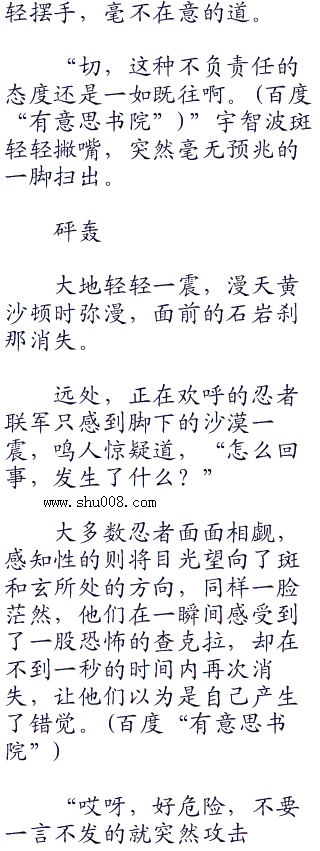 轻摆手，毫不在意的道。
“切，这种不负责任的
态度还是一如既往啊。(百度
“有意思书院”)”宇智波斑
轻轻撇嘴，突然毫无预兆的
一脚扫出。
砰轰
大地轻轻一震，漫天黄
沙顿时弥漫，面前的石岩刹
那消失。
远处，正在欢呼的忍者
联军只感到脚下的沙漠一
震，鸣人惊疑道，“怎么回
事，发生了什么？”
www.shu008.com
大多数忍者面面相觑，
感知性的则将目光望向了斑
和玄所处的方向，同样一脸
茫然，他们在一瞬间感受到
了一股恐怖的查克拉，却在
不到一秒的时间内再次消
失，让他们以为是自己产生
了错觉。(百度“有意思书
院”)
“哎呀，好危险，不要
一言不发的就突然攻击